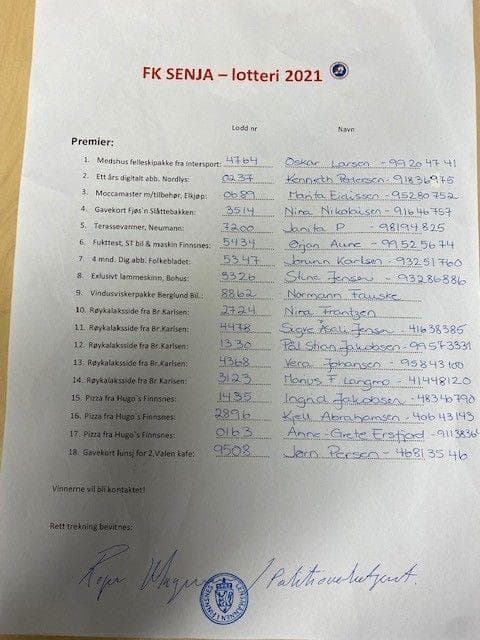 FK SENJA – lotteri 2021
Lodd nr Navn
Premier:
1. Medshus felleskipakke fra Intersport: 4764 Oskar Larsen - 99 20 47 41
2. Ett års digitalt abb. Nordlys: 0237 Kenneth Pettersen - 91836975
3. Moccamaster m/tilbehør, Elkjøp: 0689 Marita Eidissen - 95280752
4. Gavekort Fjøs´n Slåttebakken: 3514 Nina Nikolaisen - 91646757
5. Terassevarmer, Neumann: 7200 Janita P - 98194825
6. Fukttest, ST bil & maskin Finnsnes: 5434 Ørjan Aune - 99525674
7. 4 mnd. Dig abb. Folkebladet: 5347 Jorunn Karlsen - 93251760
8. Exlusivt lammeskinn, Bohus: 5326 Stine Jensen - 93286886
9. Vindusviskerpakke Berglund Bil.: 8862 Normann Fauske
10. Røykalaksside fra Br.Karlsen: 2724 Nina Frantzen
11. Røykalaksside fra Br.Karlsen: 4478 Sigve Jensen - 41638385
12. Røykalaksside fra Br.Karlsen: 1330 Pål Stian Jakobsen - 99573331
13. Røykalaksside fra Br.Karlsen: 4368 Vera Johansen - 95843100
14. Røykalaksside fra Br.Karlsen: 3123 F Langmo - 41448120
15. Pizza fra Hugo´s Finnsnes: 1435 Ingrid Jakobsen - 48346790
16. Pizza fra Hugo´s Finnsnes: 2896 Kjell Abrahamsen - 40643143
17. Pizza fra Hugo´s Finnsnes: 0163 Anne-Grete Ersfjord - 9113836
18. Gavekort lunsj for 2,Valen kafe: 9508 Jørn Persen - 46813546
Vinnerne vil bli kontaktet!
Rett trekning bevitnes:
Roger